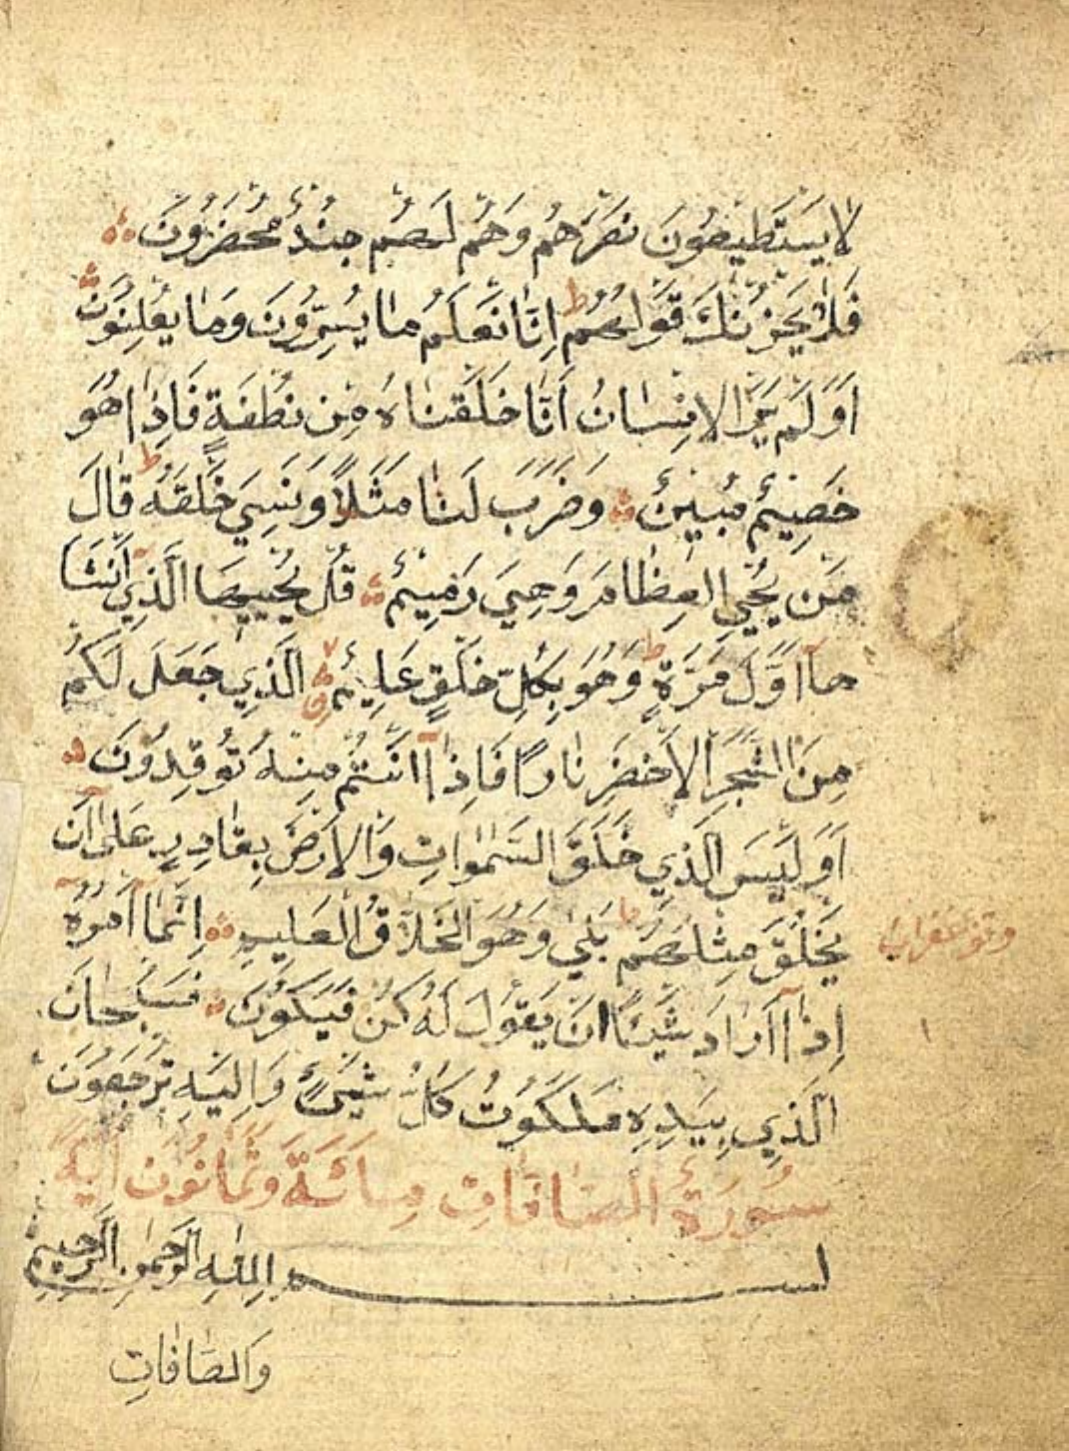 لَا يَسْتَطِيعُونَ نَصْرَهُمْ وَهُمْ لَهُمْ جُنْدٌ مُحْضَرُونَ
فَلَا يَحْزُنْكَ قَوْلُهُمْ ط اِنَّا نَعْلَمُ مَا يُسِرُّونَ وَمَا يُعْلِنُونَ
اَوَلَمْ يَرَ الْاِنْسَانُ اَنَّا خَلَقْنَاهُ مِنْ نُطْفَةٍ فَاِذَا هُوَ
خَصِيمٌ مُبِينٌ وَضَرَبَ لَنَا مَثَلًا وَنَسِيَ خَلْقَهُ ط قَالَ
مَنْ يُحْيِ الْعِظَامَ وَهِيَ رَمِيمٌ قُلْ يُحْيِيهَا الَّذِي اَنْشَا
هَا اَوَّلَ مَرَّةٍ ط وَهُوَ بِكُلِّ خَلْقٍ عَلِيمٌ الَّذِي جَعَلَ لَكُمْ
مِنَ الشَّجَرِ الْاَخْضَرِ نَارًا فَاِذَا اَنْتُمْ مِنْهُ تُوقِدُونَ
اَوَلَيْسَ الَّذِي خَلَقَ السَّمٰوَاتِ وَالْاَرْضَ بِقَادِرٍ عَلٰى اَنْ
يَخْلُقَ مِثْلَهُمْ ط بَلٰى وَهُوَ الْخَلَّاقُ الْعَلِيمُ اِنَّمَا اَمْرُهُ
اِذَا اَرَادَ شَيْئًا اَنْ يَقُولَ لَهُ كُنْ فَيَكُونُ فَسُبْحَانَ
الَّذِي بِيَدِهِ مَلَكُوتُ كُلِّ شَيْءٍ وَاِلَيْهِ تُرْجَعُونَ
سُورَةُ الصَّافَّاتِ مِائَةٌ وَثَمَانُونَ اٰيَةً
بسم اللهِ الرَّحْمٰنِ الرَّحِيمِ
وَالصَّافَّاتِ